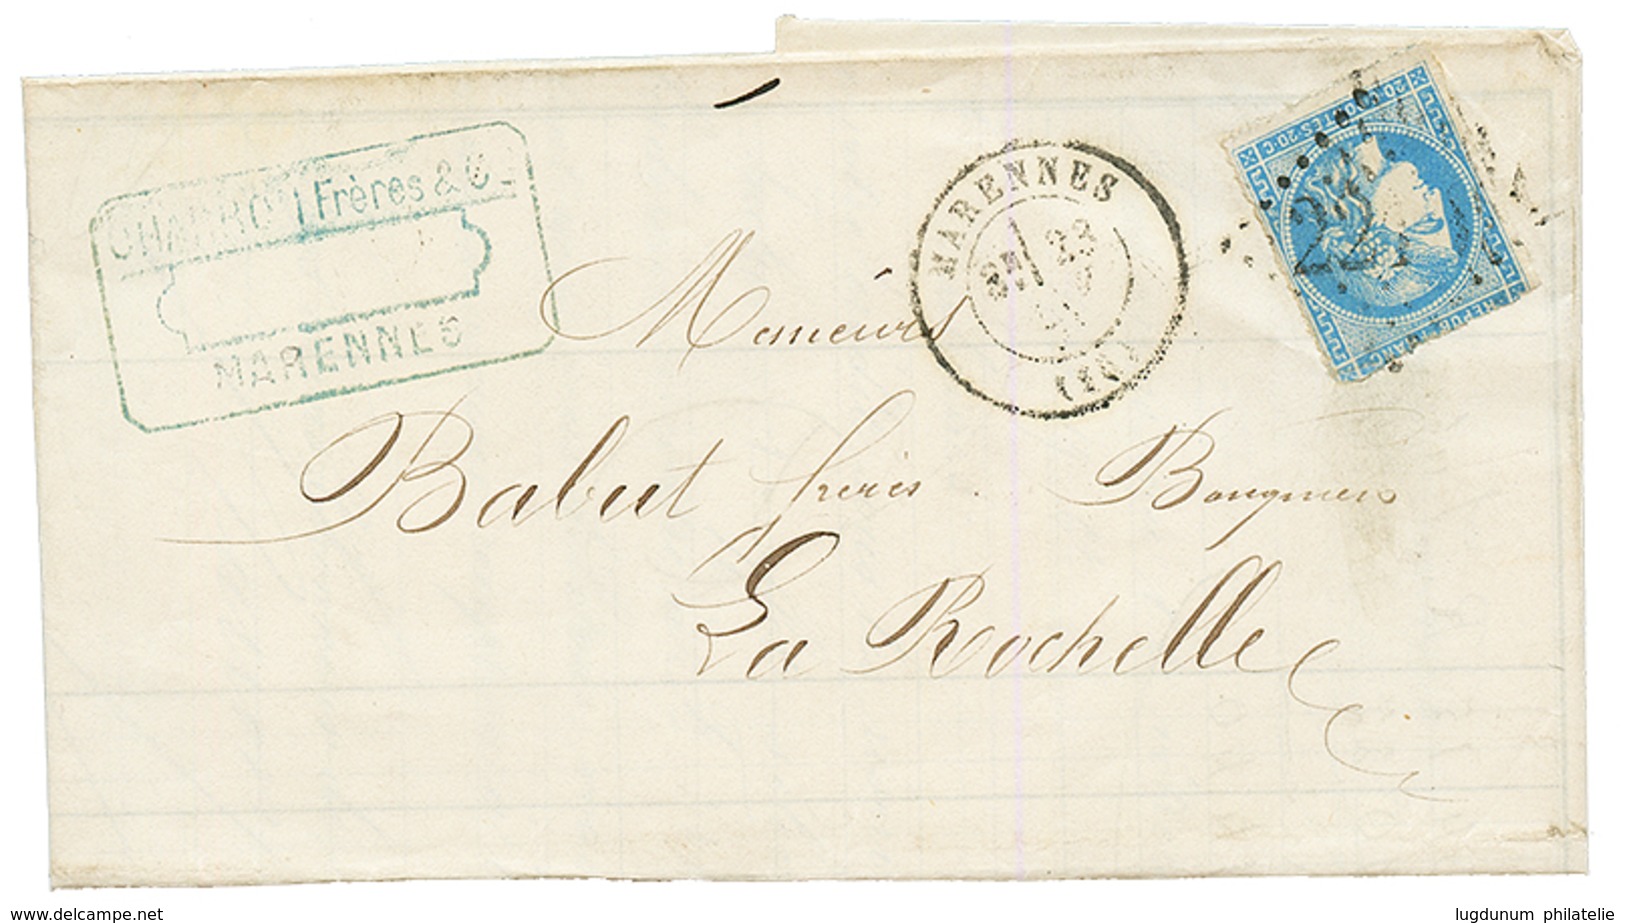 Frères & C
MARENNES
MARENNES
23
(16)
20 C. POSTES 20 C.
REPUB FRANC
22
Messieurs
Babut frères Banquiers
La Rochelle
www.delcampe.net
lugdunum philatelie